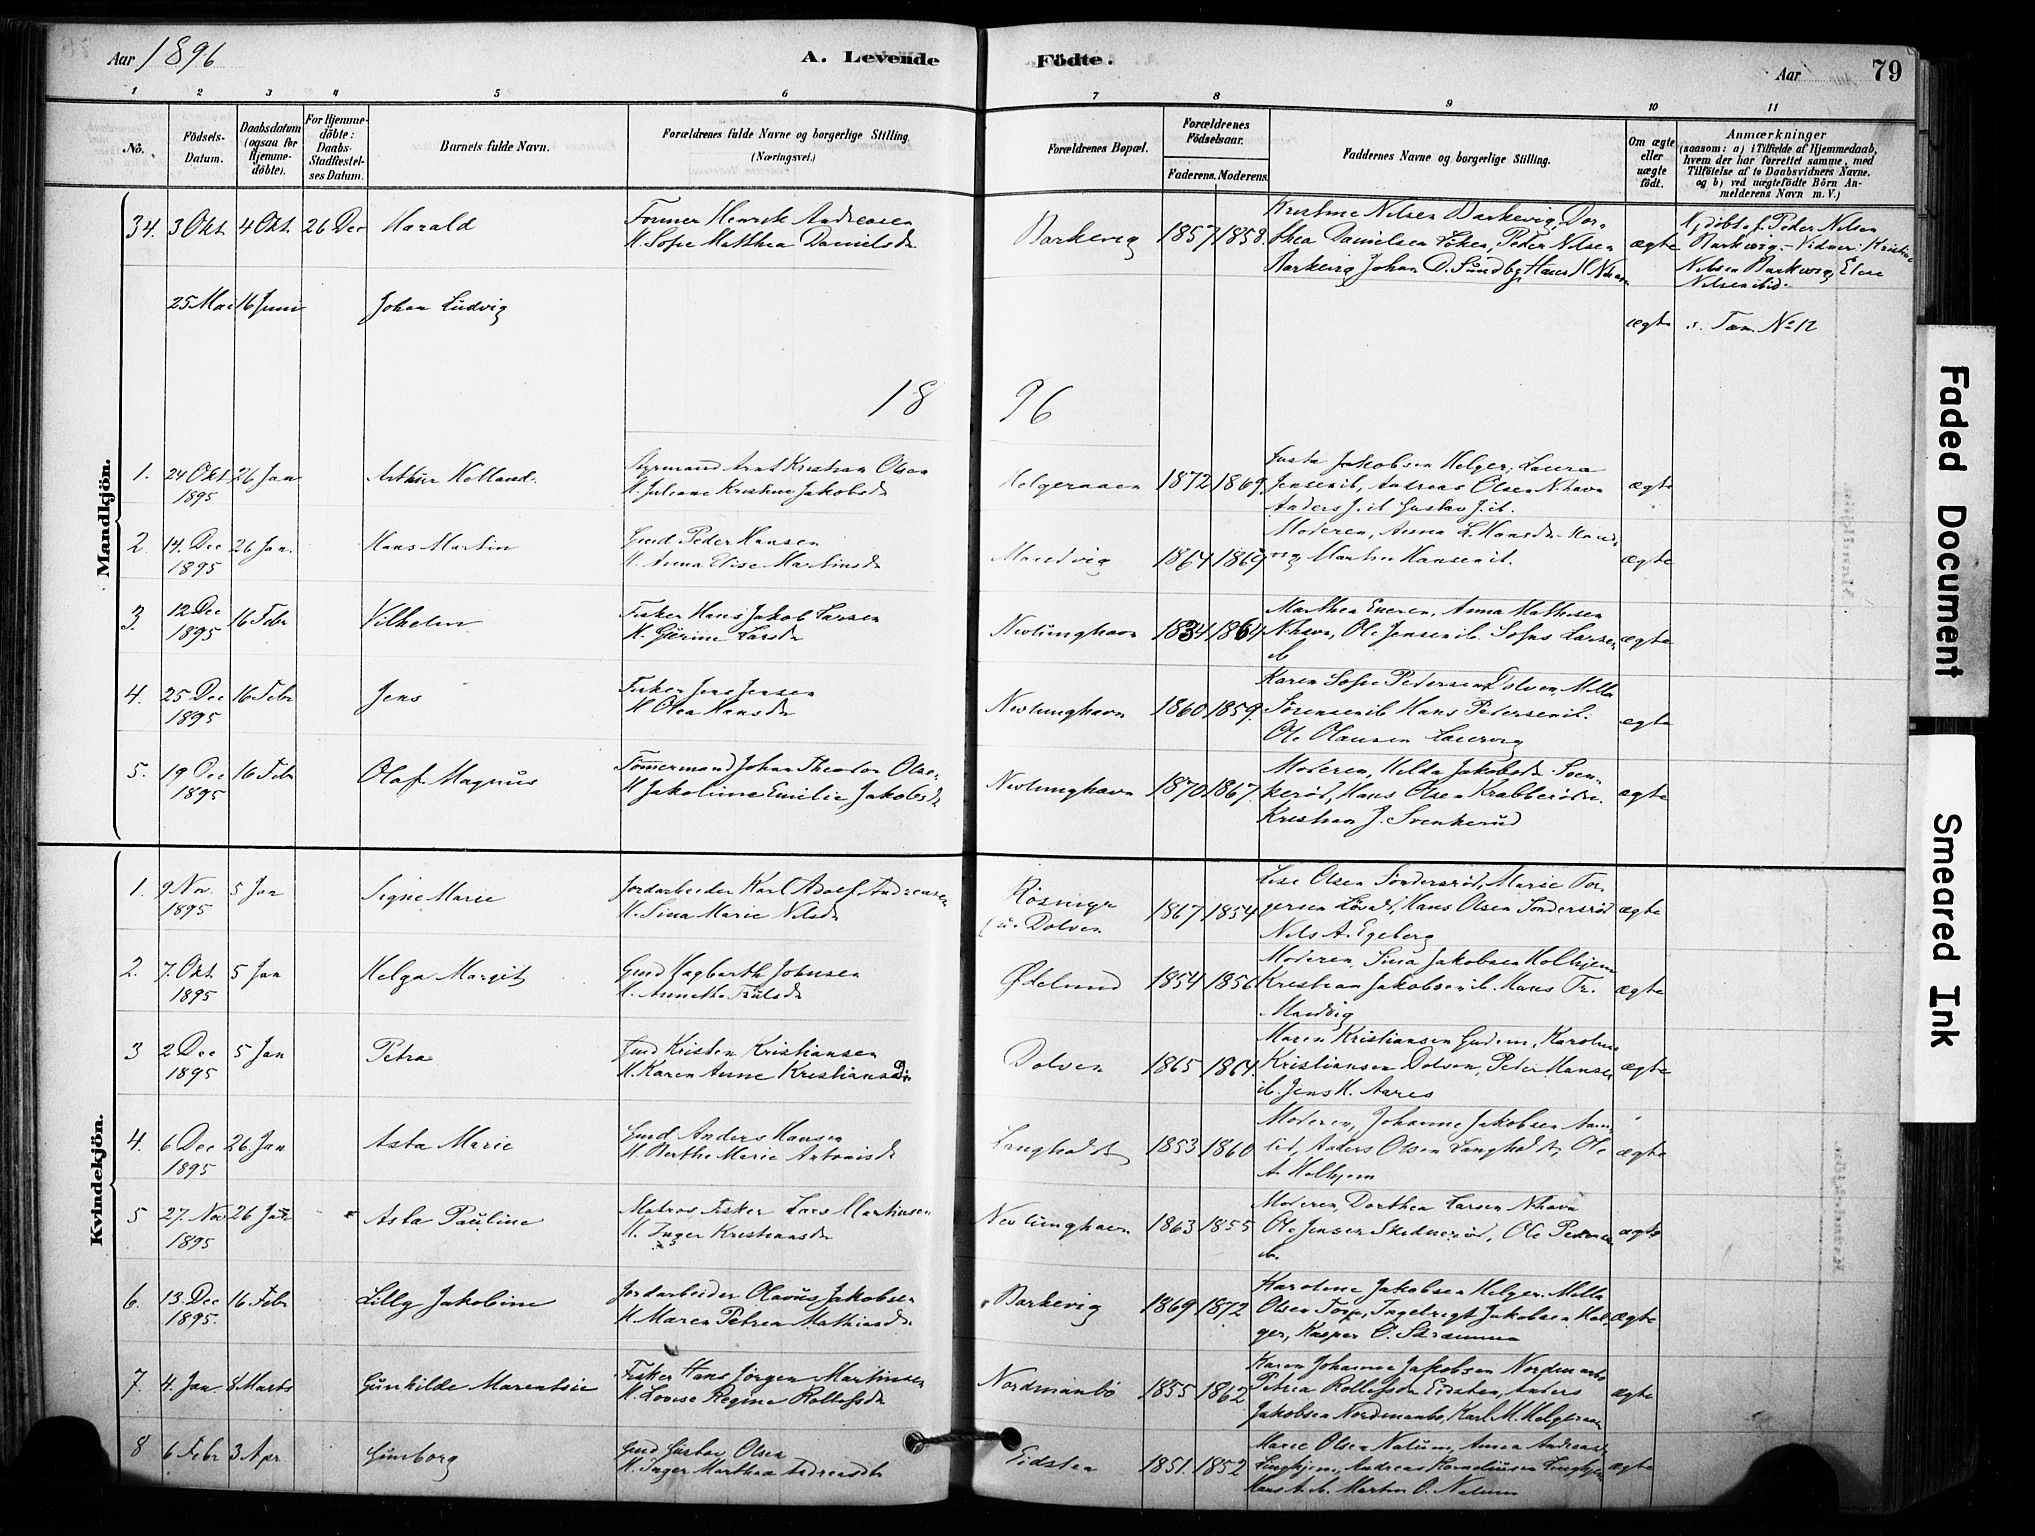 Aar 1896
A. Levende Födte.
Aar 79
1 2 3 4 5 6 7 8 9 10 11
No.
Födsels-Datum.
Daabsdatum (ogsaa for Hjemme-döbte).
For Hjemme-döbte: Daabs-Stadfæstel-ses Datum.
Barnets fulde Navn.
Forældrenes fulde Navne og borgerlige Stilling. (Næringsvei.)
Forældrenes Bopæl.
Forældrenes Födselsaar.
Faderens. Moderens.
Faddernes Navne og borgerlige Stilling.
Om ægte eller uægte födt.
Anmærkninger
(saasom: a) i Tilfælde af Hjemmedaab,
hvem der har forrettet samme, med
Tilföielse af to Daabsvidners Navne.
og b) ved uægtefödte Börn An-
melderens Navn m. V.)
Mandkjön.
34. 3 Okt. 4 Okt. 26 Dec Harald
Former Henrik Andreasen
H. Sofie Matthea Danielsdr
Barkevig 1857 1858.
Kristine Nilsen Barkevig, Dor-
thea Danielsen, Peder Nilsen
Barkevig Johan D. Sundby, Hans
ægte
Hjdöbt af Peder Nilsen
Barkevig - Vidner: Kristine
Nilsen Barkevig, Elen
Nilsen ibid.
25 Mai 16 Juni Johan Ludvig ægte s. Tam. No 12
18 96
1. 24 Okt 1895 26 Jan Arthur
Styrmand Arnt Kristian Olsen
H. Juliane Kristine Jakobsdr
Helgeraaen 1872 1869.
Jakobsen Helger, Laura
Jensen ib, Andreas Olsen N.havn
Anders J. ib Gustav J. ib.
ægte
2 14. Dec 1895 26 Jan. Hans Martin
Gmd Peder Hansen
H. Anna Elise Martinsdr
Manvig 1864 1869
Moderen, Anna L. Hansdr
Martin Hansen ib.
ægte
3. 12 Dec 1895 16 Febr Vilhelm
Fisker Hans Jakob Larsen
H. Gurine Larsdr
Nevlunghavn 1834 1864
Marthea Evensen, Anna Mathisen
N.havn, Ole Jensen ib. Sofus Larsen
ib
ægte
4. 25 Dec 1895 16 Febr Jens
Fisker Jens Jensen
H Olea Hansdr
Nevlunghavn 1860 1859.
Karen Sofie Pedersen Dolven Milla
Sörensen ib Hans Pedersen ib.
Ole Olausen Laurvig
ægte
5. 19 Dec 1895 16 Febr Olaf Magnus
Tömmermand Johan Theodor Olsen
H Jakobine Emilie Jakobsdr
Nevlunghavn 1870 1867.
Moderen, Hilda Jakobsdr Sven-
keröd, Hans Olsen Krabberöd
Kristian J. Svenkerud
ægte
Kvindekjön.
1. 9 Nov. 1895 5 Jan Signe Marie
Jordarbeider Karl Adolf Andreasen
H. Sina Marie Nilsdr
Røsninge
(u. Dolven
1867 1854
Lise Olsen Söndersröd, Marie Tor-
gersen, Hans Olsen Söndersröd
Nils A. Egeberg
ægte
2. 7. Okt. 1895 5 Jan Helga Margit
Gmd Hagbarth Johnsen
H. Annethe Trulsdr
Ødelund 1854 1856
Moderen, Sina Jakobsen Holhjem
Kristian Jakobsen ib. Hans Tr.
Manvig
ægte
3 2 Dec 1895 5 Jan Petra
Gmd Kristen Kristiansen
H. Karen Anne Kristiansdr
Dolven 1865 1864.
Maren Kristiansen, Karoline
Kristiansen Dolven, Peder Hansen
ib. Jens H. Aares
ægte
4. 6 Dec 1895 26 Jan Asta Marie
Gmd Anders Hansen
H Berthe Marie Antonisdr
Langholdt 1853 1860
Moderen, Johanne Jakobsen
Anders Olsen Langholdt, Ole
A. Holhjem
ægte
5 27. Nov 1895 26 Jan Asta Pauline
Matros Fisker Lars Martinsen
H. Inger Kristiansdr
Nevlunghavn 1863 1855
Moderen, Dorthea Larsen N.havn
Ole Jensen Skidneröd, Ole Pedersen
ib.
ægte
6. 13. Dec 1895. 16 Febr Lilly Jakobine
Jordarbeider Olavus Jakobsen
H. Maren Petrea Mathiasdr.
Barkevig 1869 1872
Karoline Jakobsen Helger. Milla
Olsen Torp, Ingebregt Jakobsen Hel-
ger, Kasper O.
ægte
7. 4. Jan. 8 Marts Gunhilde Marentsie
Fisker Hans Jörgen Martinsen
H. Lovise Regine Rollefsdr
Nordmanbö 1855 1862
Karen Johanne Jakobsen Nordmanbö
Petrea Rollefsdr Eidsten, Anders
Jakobsen Nordmanbö, Karl M. Helgeraaen
ægte
8 6 Febr 3 Apr Gunborg
Gmd Gustav Olsen
H. Inger Marthea Andreasdr
Eidsten 1851. 1852
Marie Olsen Nalum, Anna Andreas
Andreas Korneliusen
Hans A. ib. Martin O. Nalum
ægte
Faded Document
Smeared Ink